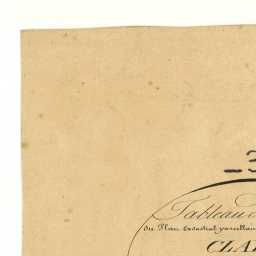 Tableau
du Plan Cadastral parcellaire
CLA